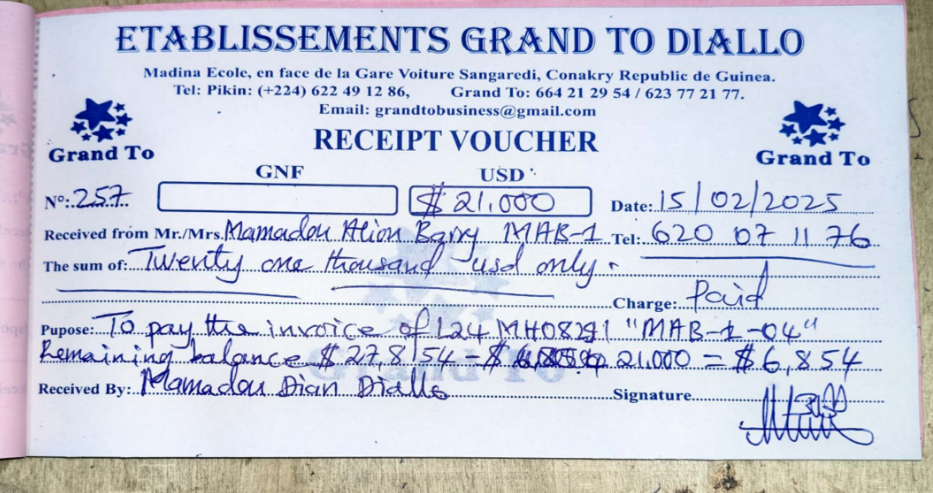 ETABLISSEMENTS GRAND TO DIALLO
Madina Ecole, en face de la Gare Voiture Sangaredi, Conakry Republic de Guinea.
Tel: Pikin: (+224) 622 49 12 86, Grand To: 664 21 29 54 / 623 77 21 77.
Email: grandtobusiness@gmail.com
Grand To
RECEIPT VOUCHER
Grand To
GNF USD
Nº: 257 $ 21,000 Date: 15/02/2025
Received from Mr./Mrs. Mamadou Alion Barry MAB-1 Tel: 620 07 11 76
The sum of: Twenty one thousand usd only.
Charge: Paid
Pupose: To pay the invoice of L24 "MAB-1-04"
Remaining balance $ 27,854 = $ 21.000 = $ 6,854
Received By: Mamadou Dian Diallo Signature
Grand To